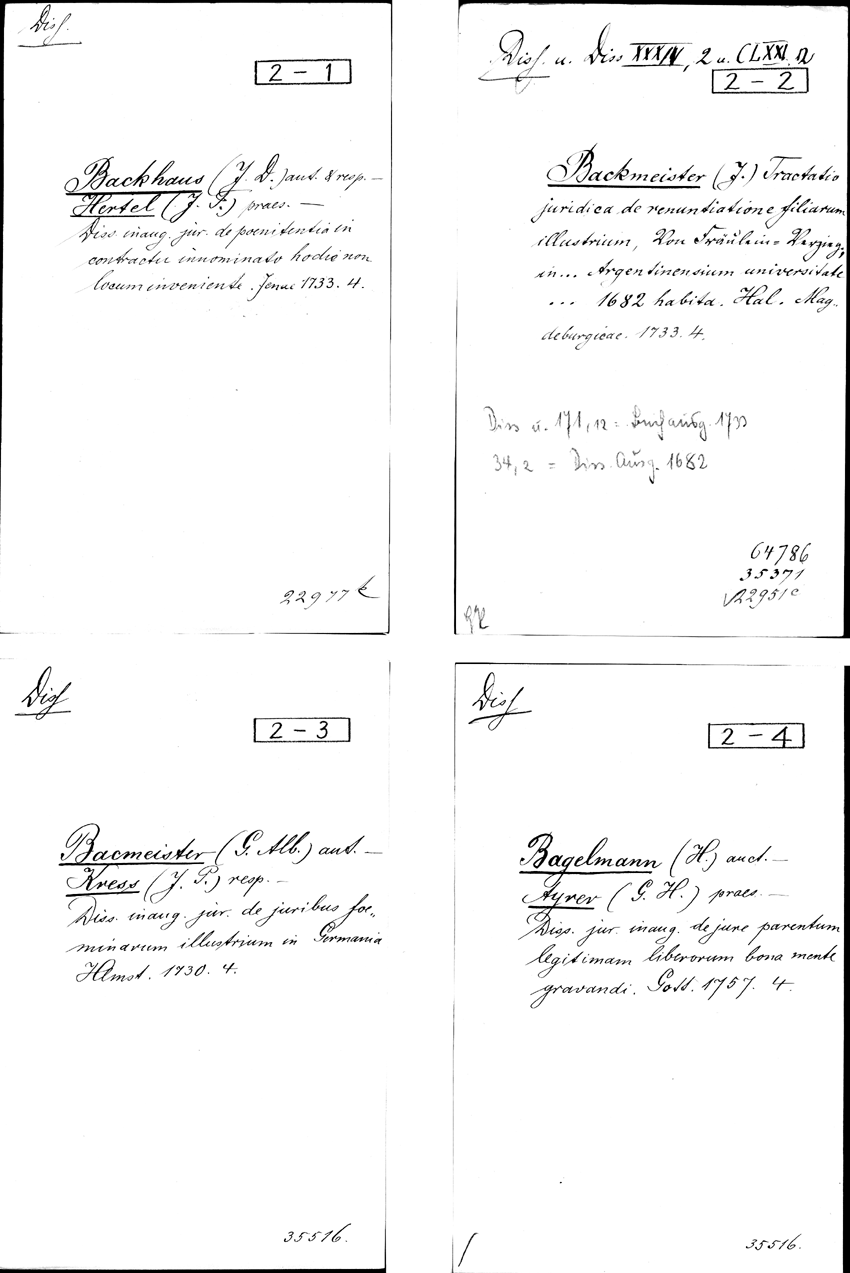 Diss.
2 - 1
Backhaus (J. D.) aut. & resp. —
Hertel (J. F.) praes. —
Diss. inaug. jur. de poenitentia in
contractu innominato hodie non
locum inveniente. Jenae 1733. 4.
22977
Diss. u. Diss XXXIV, 2 u. CLXXI. 12
2 - 2
Backmeister (J.) Tractatio
juridica de renuntiatione filiarum
illustrium, Von Fräulein= Verzieg,
in... Argentinensium universitate
... 1682 habita. Hal. Mag-
deburgicae. 1733. 4.
Diss u. 171, 12 = Buchausg. 1733
34, 2 = Diss. Ausg. 1682
64786
35371
22951c
Diss
2 - 3
Bacmeister (G. Alb.) aut. —
Kress (J. P.) resp. —
Diss. inaug. jur. de juribus foe-
minarum illustrium in Germania
Hlmst. 1730. 4.
35516.
Diss
2 - 4
Bagelmann (H.) auct. —
Ayrer (G. H.) praes. —
Diss. jur. inaug. de jure parentum
legitimam liberorum bona mente
gravandi. Gott. 1757. 4.
35516.